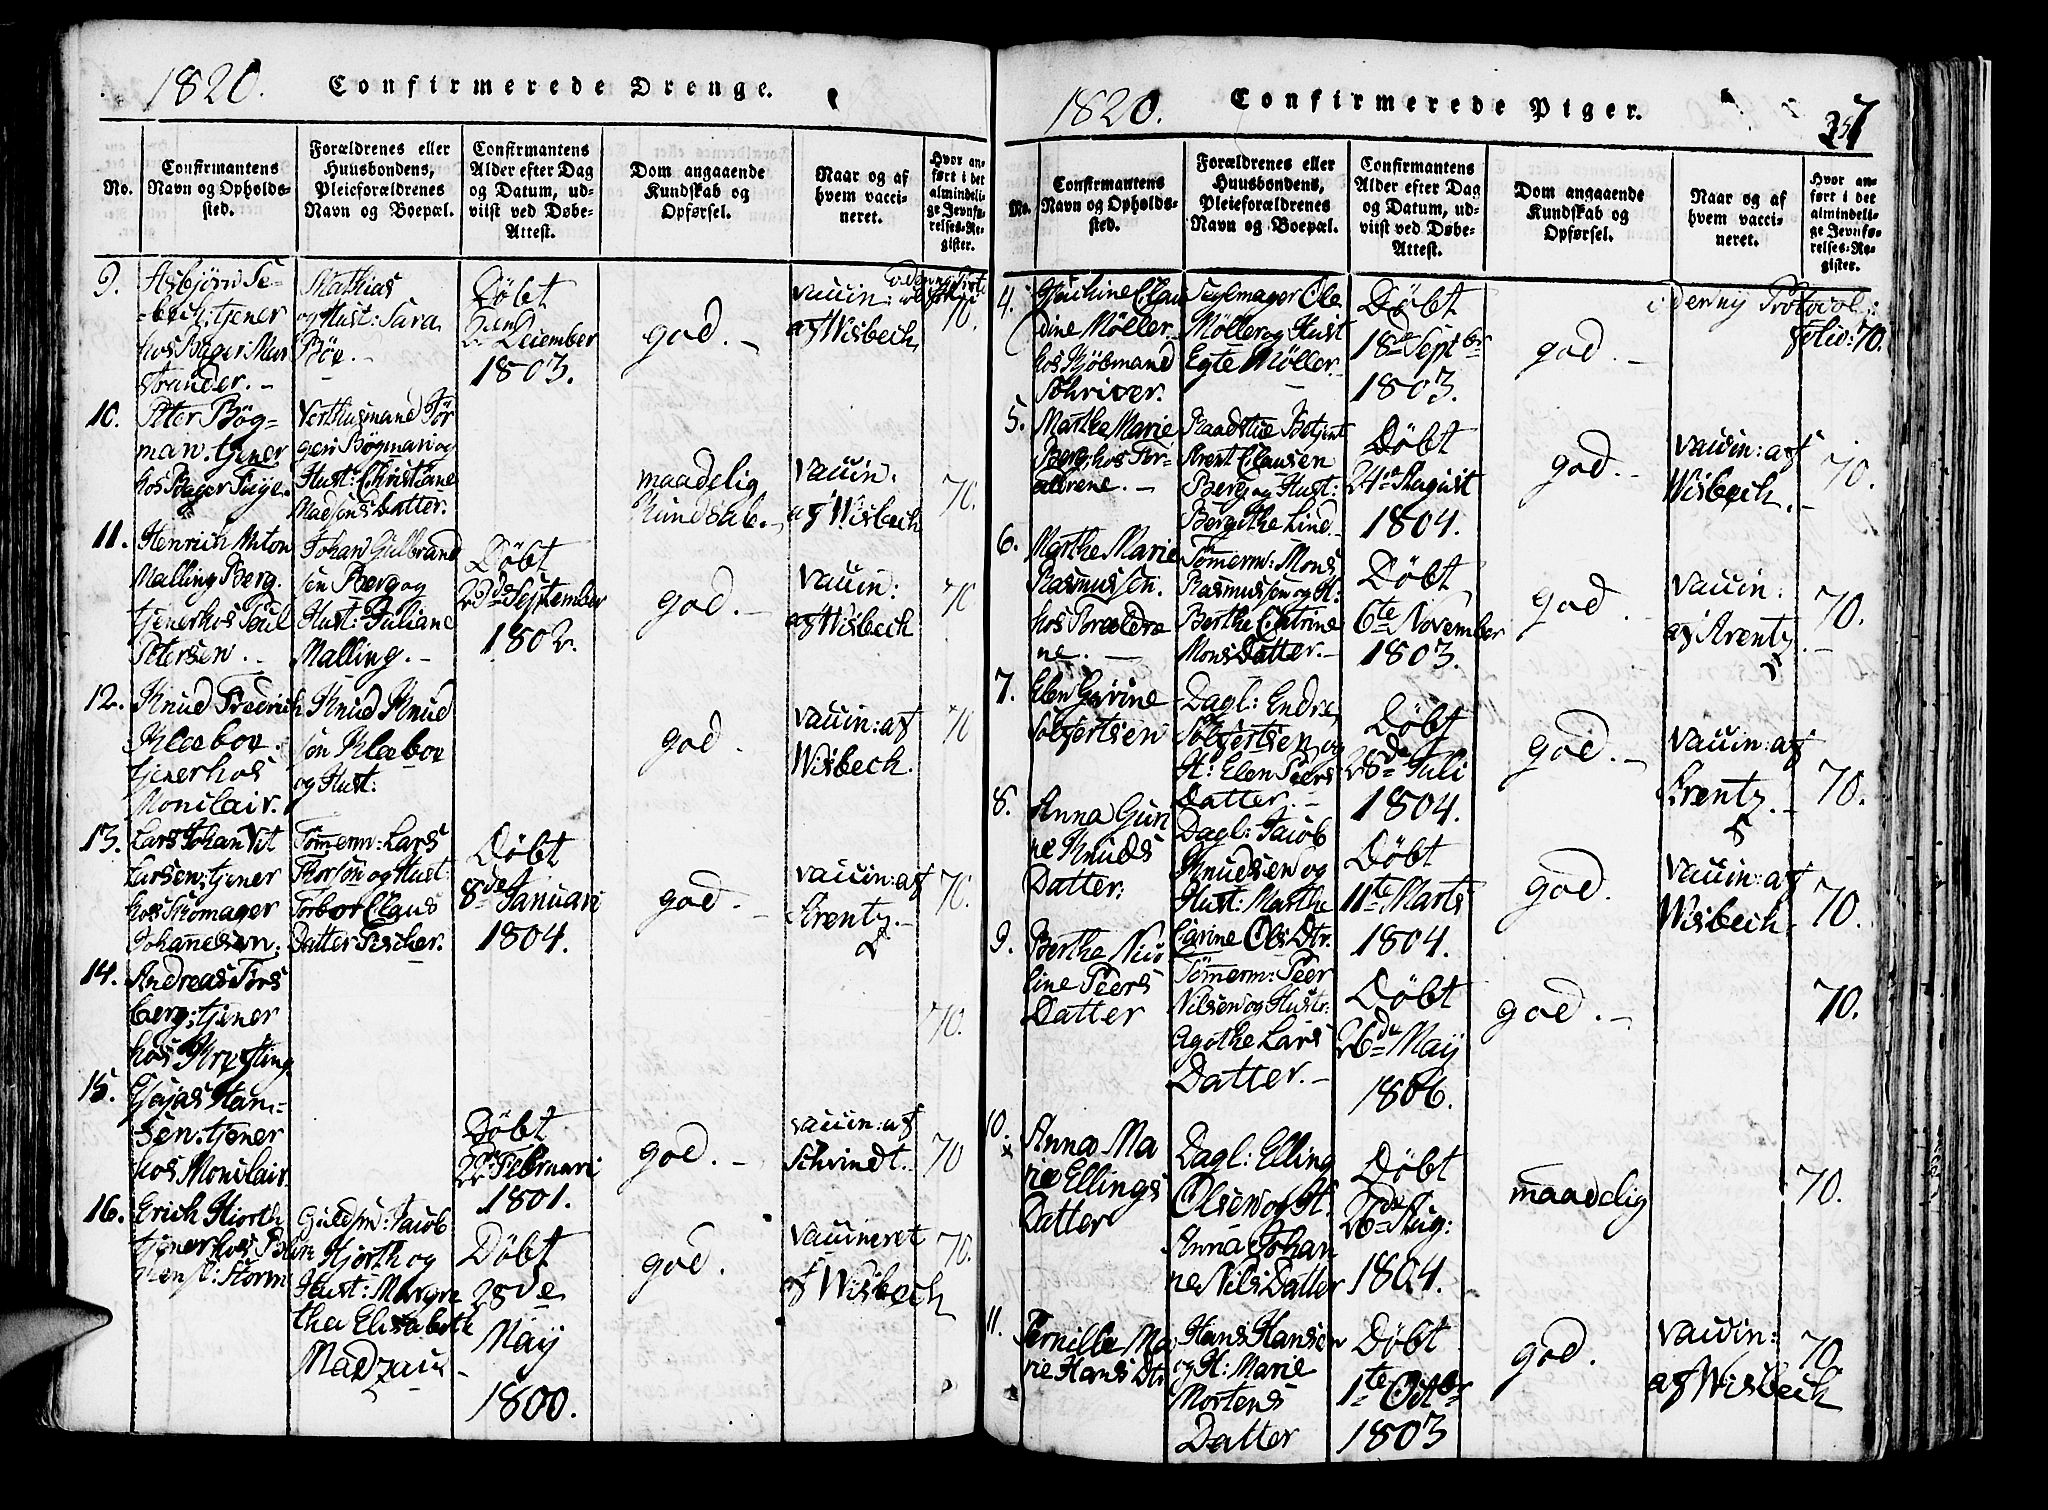 1820. Confirmerede Drenge.
No.
Confirmantens Navn og Opholds-sted.
Forældrenes eller Huusbondens, Pleieforældrenes Navn og Boepæl.
Confirmantens Alder efter Dag og Datum, ud-viist ved Døbe-Attest.
Dom angaaende Kundskab og Opførsel.
Naar og af hvem vacci-neret.
Hvor an-ført i det almindeli-ge Jevnfø-relses-Re-gister.
9.
Asbjørn Se-
bech: tjener
hos Bager Mar
strander. -
Mathias
og Hust: Sara
Böe. -
Döbt
2den December
1803.
god. -
vaccin:
af Wisbech
70.
10.
Peter Bög-
man. tjener
hos Bager
Verthusmand Jör
gen Bögman og
Hust: Christiane
Madsens Datter.
maadelig
Kundskab. -
vaccin.
af Wisbech
70.
11.
Henrich Anton
Malling Berg.
tjener hos Poul
Petersen. -
Johan Gulbrand
sen Berg og
Hust: Juliane
Malling. -
Döbt
22de September
1802.
god. -
vaccin:
af Wisbech
70
12.
Knud Fredrich
Kleeboe.
tjener hos
Monclair.
Knud Knud
sen Kleeboe
og Hust:
god.
vaccin: af
Wisbech.
70
13.
Lars Johan Vit
Larsen: tjener
hos Skomager
Johannesen.
Tömerm: Lars
Thorsön og Hust:
Torbor Claus
Datter Fischer.
Döbt
8de Januari
1804.
god. -
vaccin: af
Arentz. -
70.
14.
Andreas Fors
berg: tjener
hos Kryfting
70.
15.
Esajas Han-
sen: tjener
hos Monclair.
Döbt
22de Februari
1801.
god. -
vaccin: af
Schvindt.
70
16.
Erich Hiorth
tjener hos
Storm
Guldsm: Jacob
Hjorth og
Hust: Margre
tha Elisabeth
Madzau
Döbt
28de
Maÿ
1800.
god.
vaccineret
af Wisbech
70.
1820. Confirmerede Piger.
No.
Confirmantens Navn og Opholds-sted.
Forældrenes eller Huusbondens, Pleieforældrenes Navn og Boepæl.
Confirmantens Alder efter Dag og Datum, ud-viist ved Døbe-Attest.
Dom angaaende Kundskab og Opførsel.
Naar og af hvem vacci-neret.
Hvor an-ført i det almindeli-ge Jevnfø-relses-Re-gister.
4.
Clau
dine Möller.
hos Kjöbmand
Schriver.
Seglmager Ole
Möller og Hust
Egte Möller. -
Döbt
18de Septbr
1803.
god. -
den ny Protocol:
folio: 70.
5.
Marthe Marie
Berg: hos For-
ældrene. -
Raadstue Betjent
Arent Clausen
Berg og Hust:
Bergithe Lind. -
Döbt
24de August
1804.
god. -
vaccin: af
Wisbech. -
70.
6.
Marthe Marie
Rasmussen.
hos Foreldre
ne. -
Tömerm: Mons
Rasmussen og H:
Berthe Catrine
Mons Datter. -
Döbt
6te November
1803.
god. -
vaccin:
af Arentz. -
70.
7.
Elen Gurine
Solfertsen
Dagl: Endre
Solfertsen og
H: Elen Peers
Datter. -
Döbt
28de Juli
1804.
god. -
vaccin: af
Arentz. -
70.
8.
Anna Guri
ne Knuds
Datter:
Dagl: Jacob
Knudsen og
Hust: Marthe
Carine Ols Dtr.
Döbt
11te Marts
1804.
god.
vaccin: af
Wisbech.
70.
9.
Berthe Nico
line Peers
Datter
Tömerm: Peer
Nilsen og Hustr:
Agathe Lars
Datter. -
Döbt
26de Maÿ
1806.
god. -
70.
10.
Anna Ma
rie Ellings
Datter
Dagl: Elling
Olsen og H:
Anna Johan
ne Nils Datter
Döbt
26de Aug:
1804.
maadelig
70.
11.
Pernille Ma
rie Hans Dtr
Hans Hansen
og H: Marie
Mortens
Datter
Döbt
1te Octbr
1803
god.
vaccin:
af Wisbech
70.